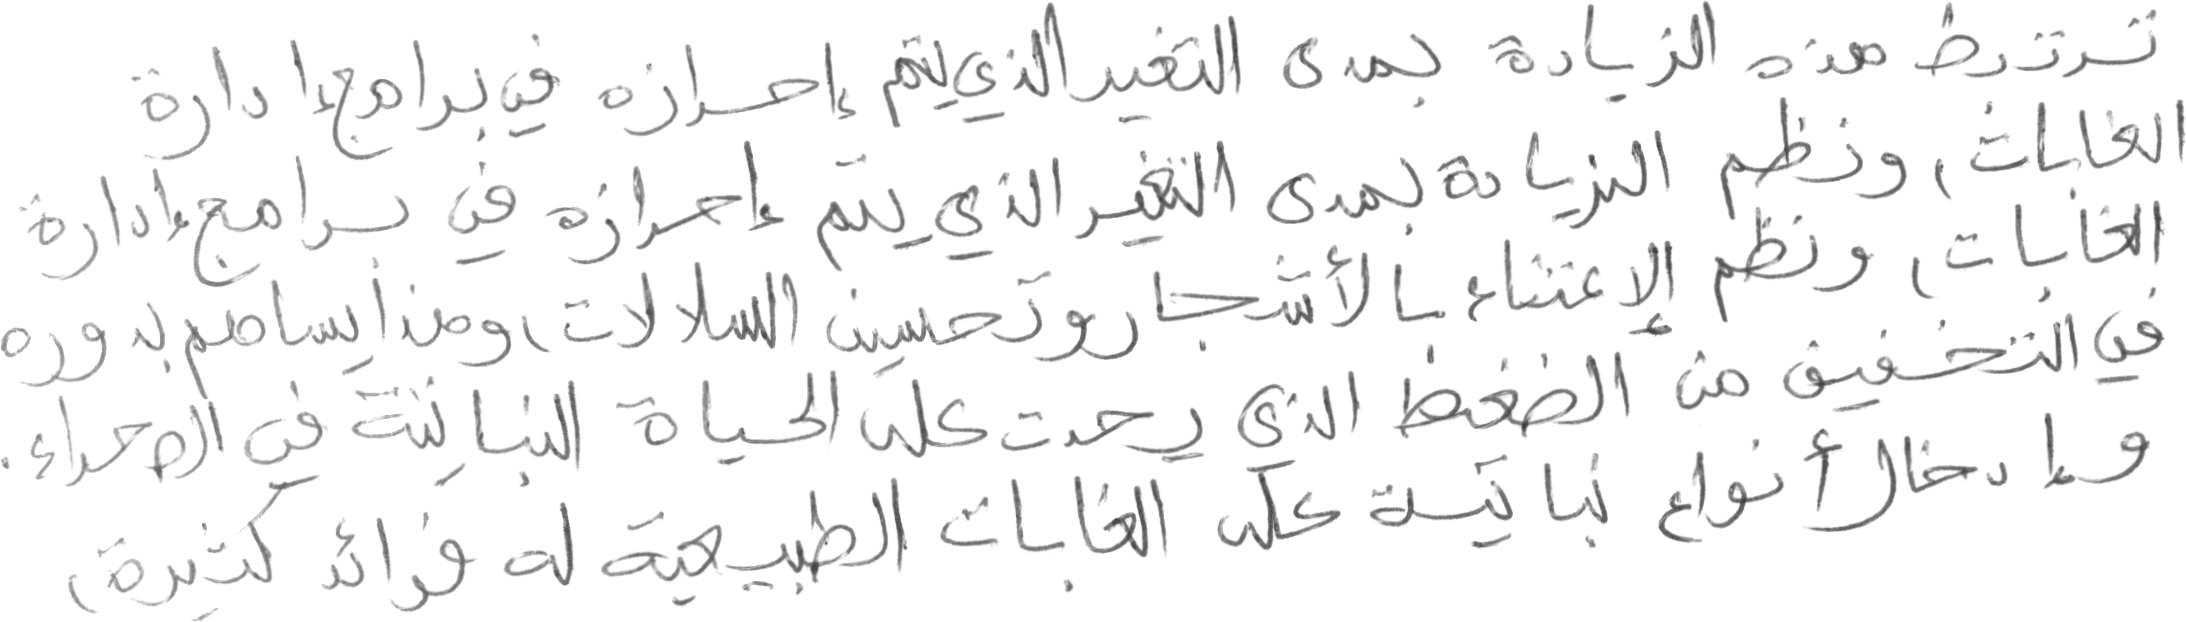 ترتبط هذه الزيادة بمدى التغير الذي يتم إحرازه في برامج إدارة
الغابات، ونظم الزيادة بمدى التغير الذي يتم إحرازه في برامج إدارة
الغابات، ونظم الإعتناء بالأشجار وتحسين السلالات، وهذا يساهم بدوره
في التخفيف من الضغط الذي يحدث على الحياة النباتية في الصحراء.
وإدخال أنواع نباتية على الغابات الطبيعية له فوائد كثيرة،